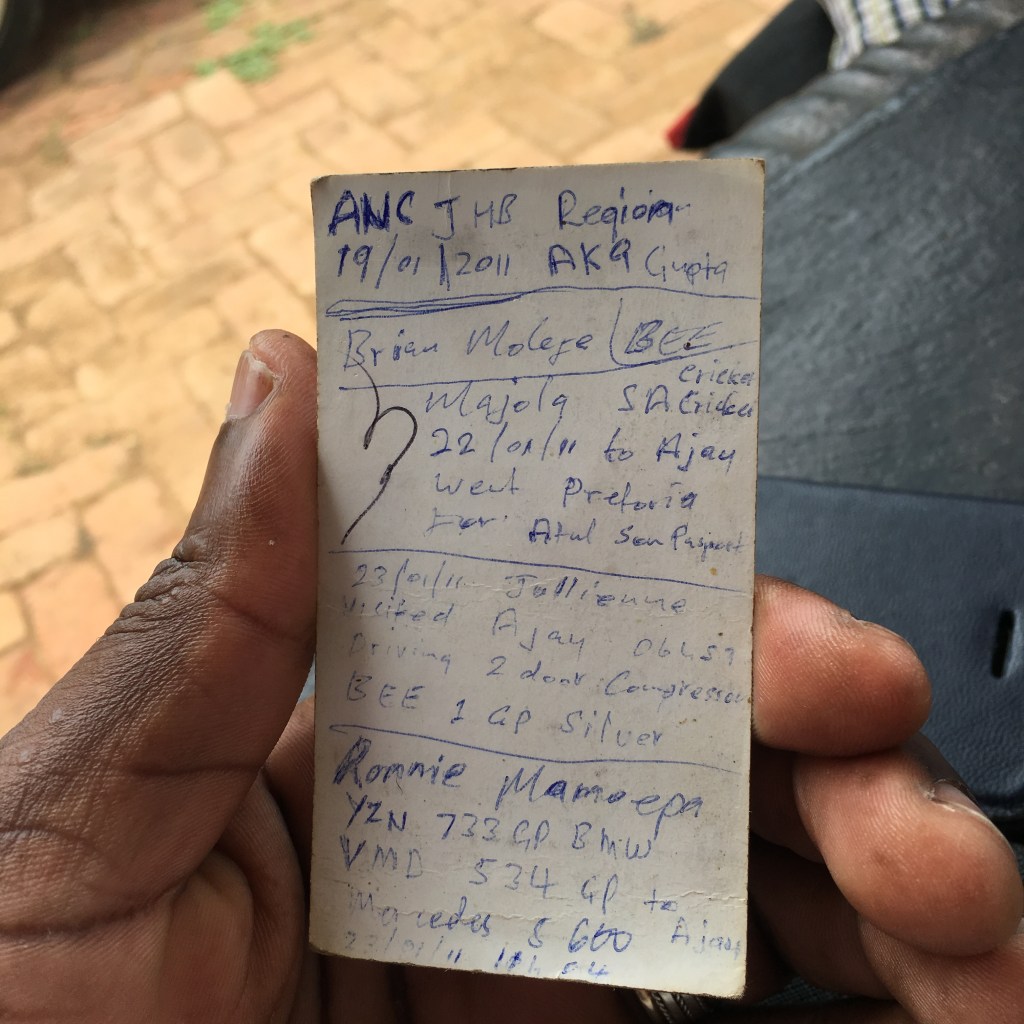 ANC JHB Region
19/01/2011 AKA Gupta
Brian Molefe BEE
Cricket
Majola SA Cricket
22/01/11 to Ajay
Went Pretoria
For Atul Son Pasport
23/01/11 Jullienne
Visited Ajay
Driving 2 door Compressor
BEE 1 GP Silver
Ronnie Mamoepa
YZN 733 GP BMW
VMD 534 GP to
Mercedes S 600 Ajay
23/01/11